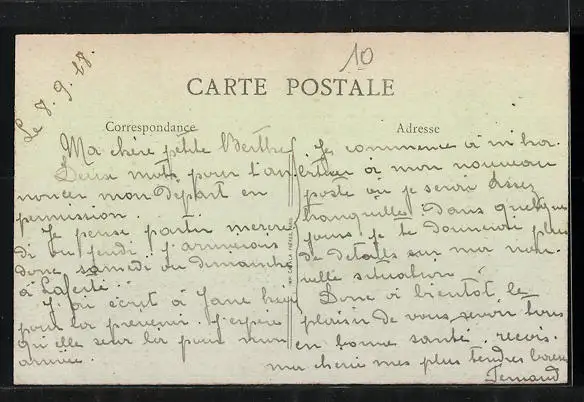 10
Le 7.9.17.
CARTE POSTALE
Correspondance
Adresse
Ma chère petite Berthe
Deux mots pour t'an
noncer mon Départ en
permission.
Je pense partir mercre
di ou jeudi j'arriverais
donc samedi ou dimanche
à Laferté.
J'ai écrit à Jane hier
pour la prévenir. J'espère
qu'elle sera là pour mon
arrivée.
Je commence à m'ha.
bituer à mon nouveau
poste ou je serai assez
tranquille. Dans quelques
jours je te donnerai plus
de détails sur ma nou-
velle situation.
Donc à bientôt le
plaisir de vous revoir tous
en bonne santé. reçois.
ma chérie mes plus tendres baisers
Fernand